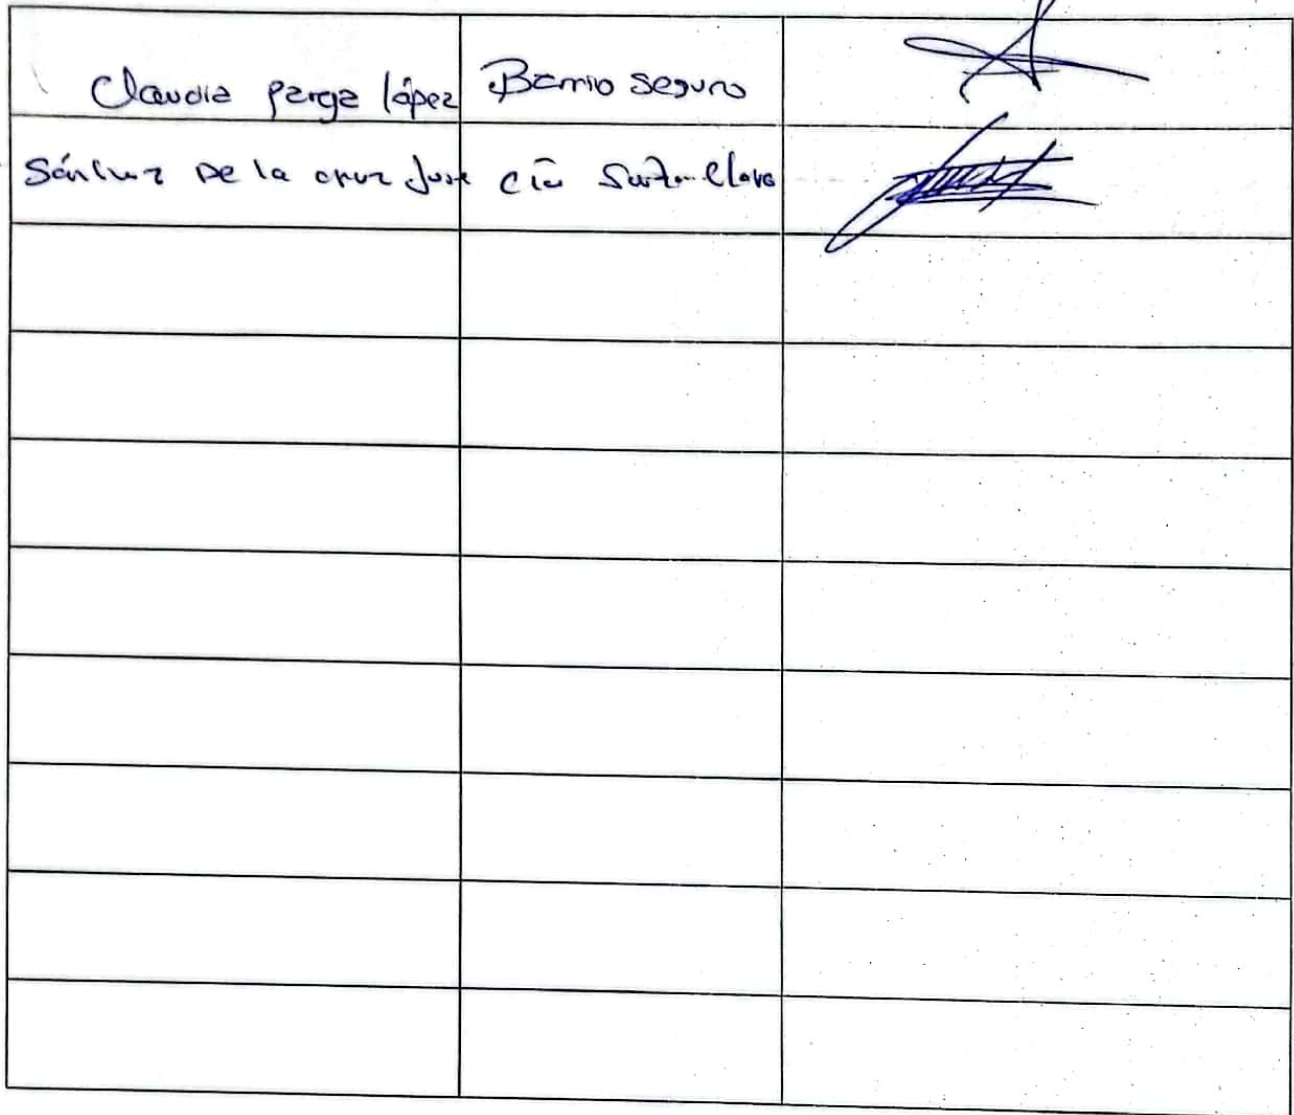 Claudia parga lópez Barrio seguro
Sánchez De la cruz José Cía Santa Clara